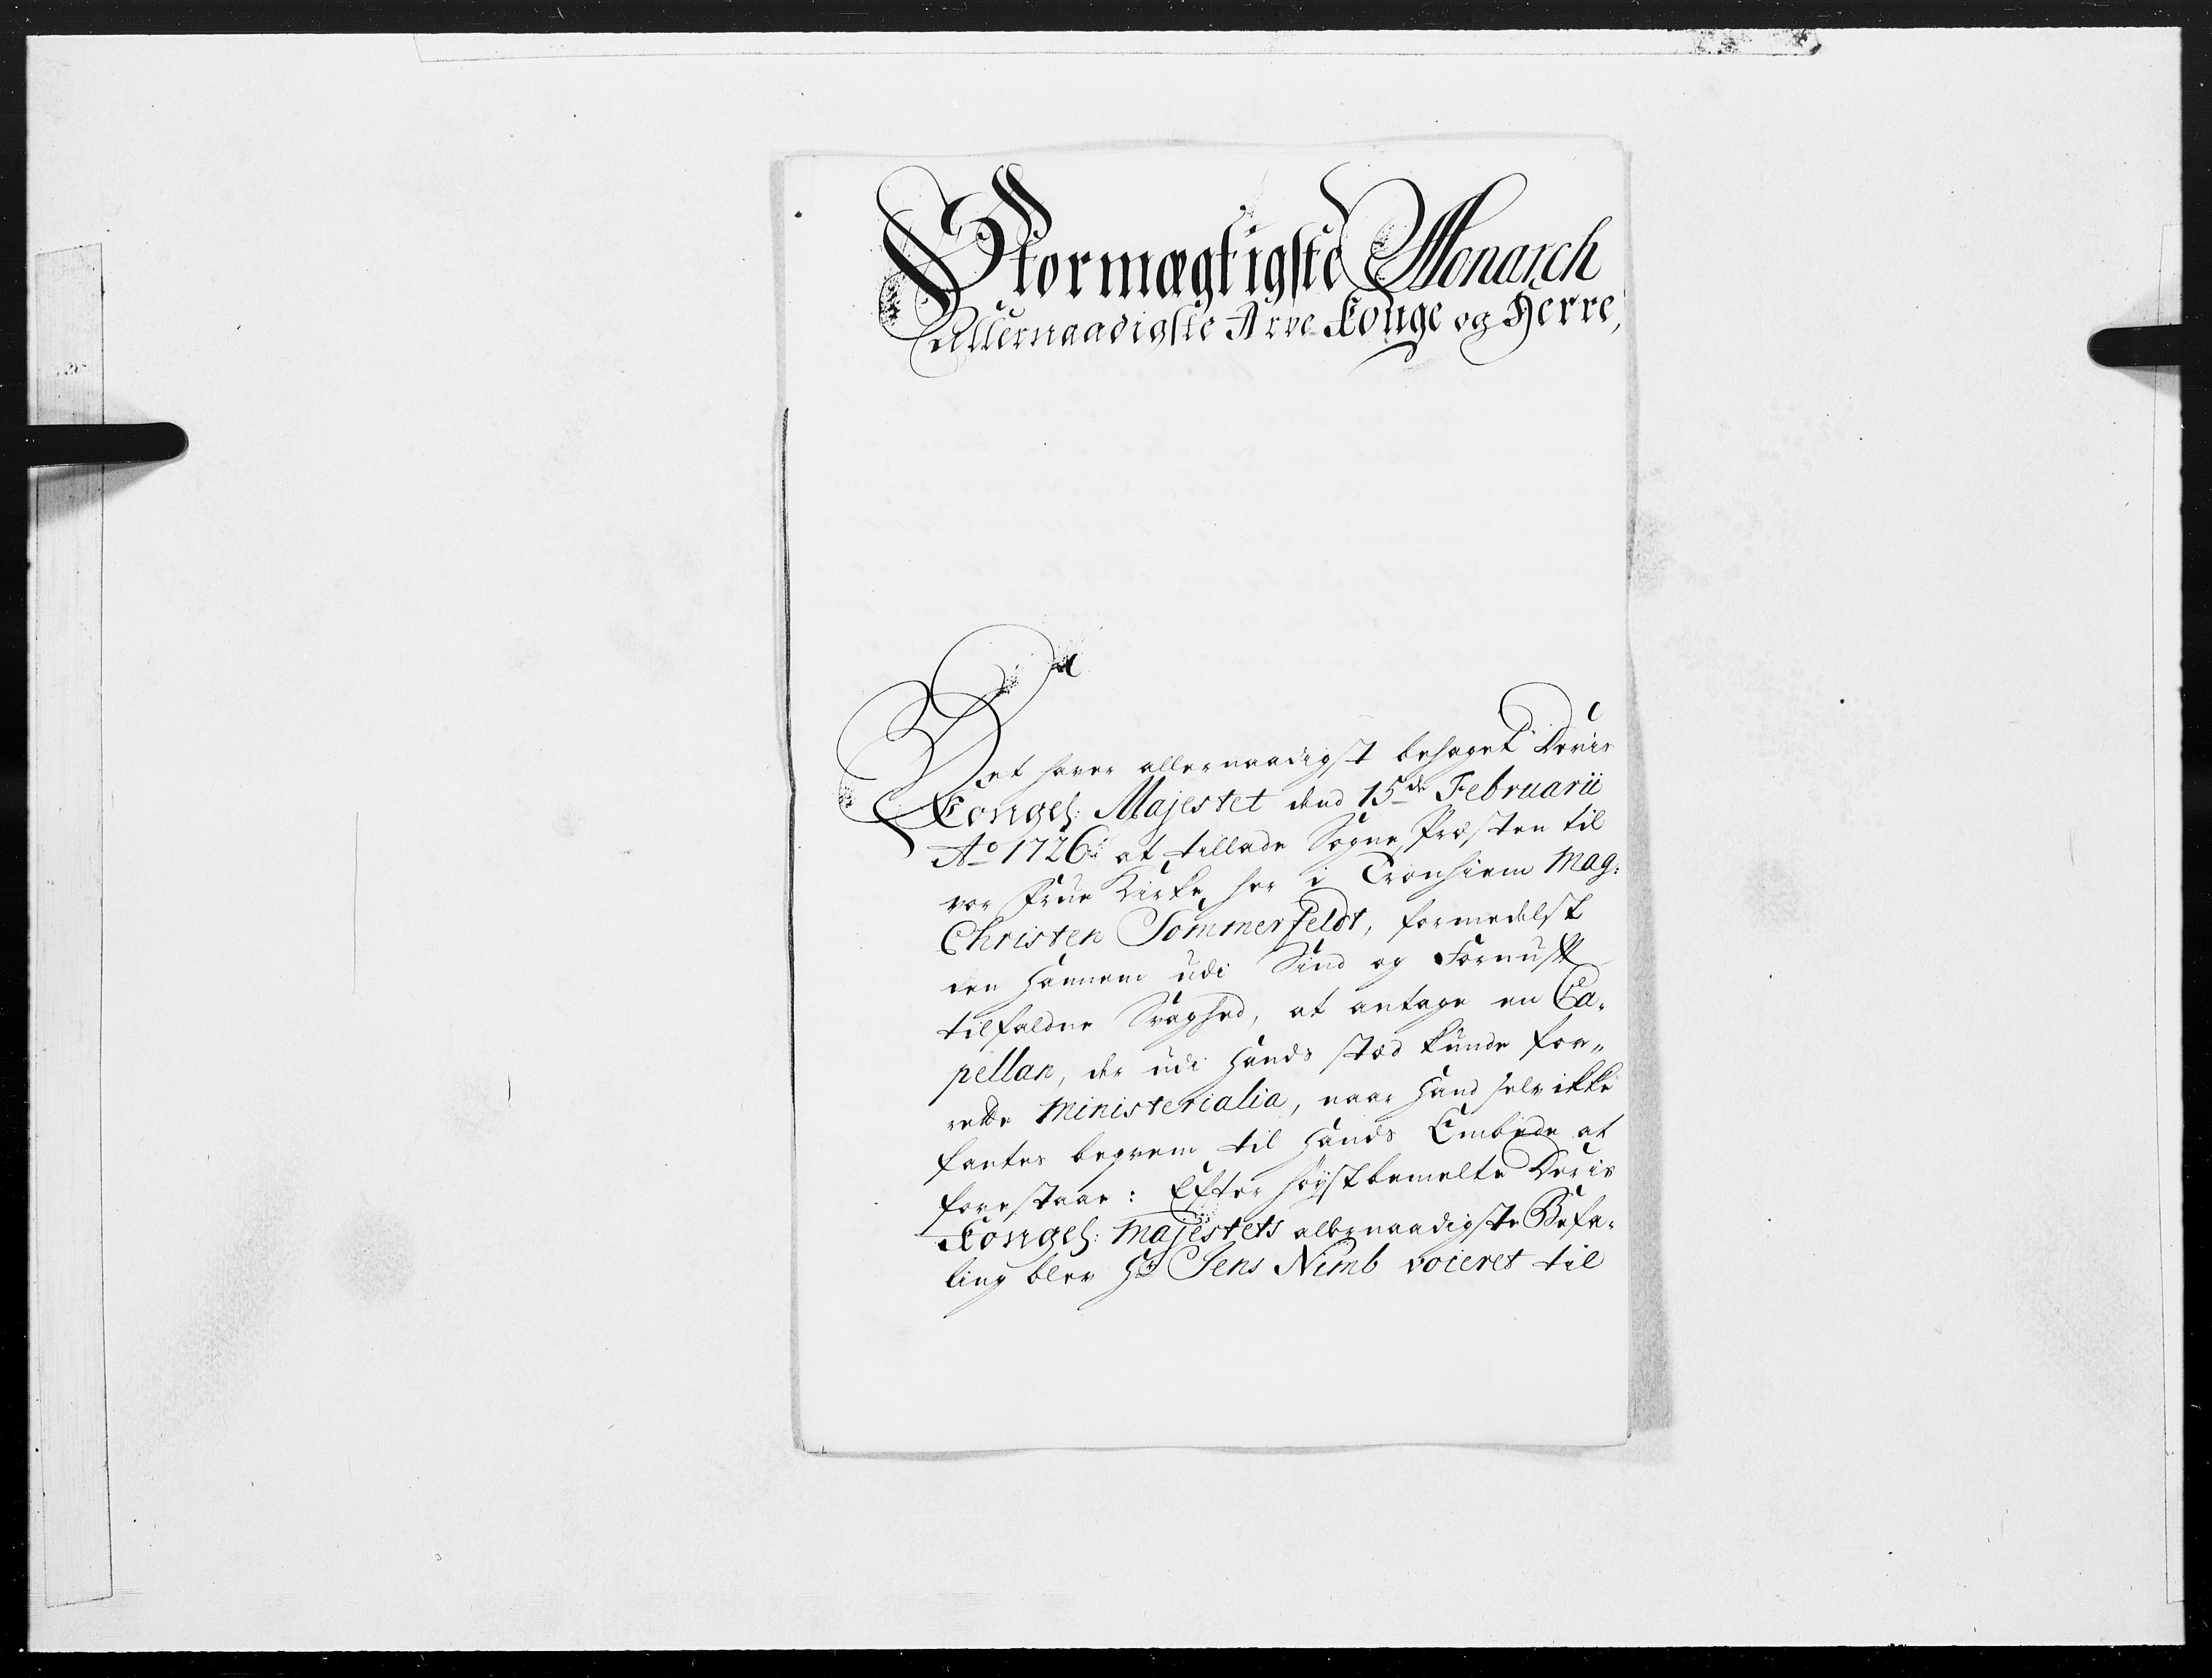 Stormægtigste Monarch
Allernaadigste Arve Konge og Herre,
Det haver allernaadigst behaget Deris
Kongel: Majestet dend 15de Februarii
Ao 1726 at tillade Sogne Præsten til
vor Frue Kirke her i Tronhiem Mag:
Christen Sommerfeldt, formedelst
een hannem udi Sind og Fornuft
tilfaldne Svaghed, at antage en Ca-
pellan, der udi hands sted kunde for-
rette Ministerialia, naar hand selv ikke
fantes beqvem til hands Embede at
forestaae: Efter høystbemelte Deris
Kongel: Majestets allernaadigste Befa-
ling blev Hr Jens Nimb voceret til